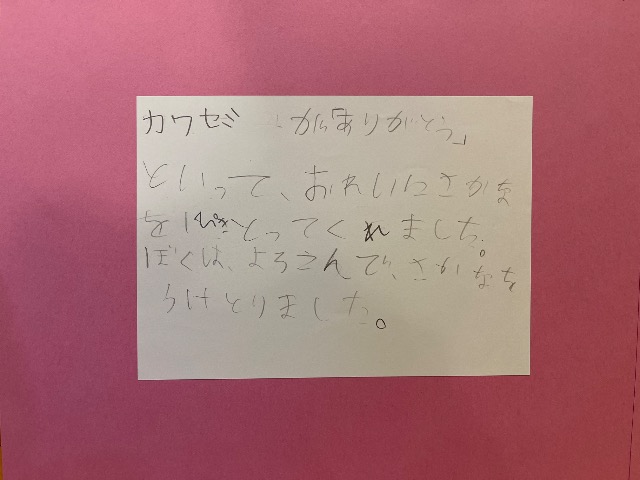 カワセミが「ありがとう」
といって、おれいにさかな
をとってくれました。
ぼくは、よろこんで、さかなを
うけとりました。